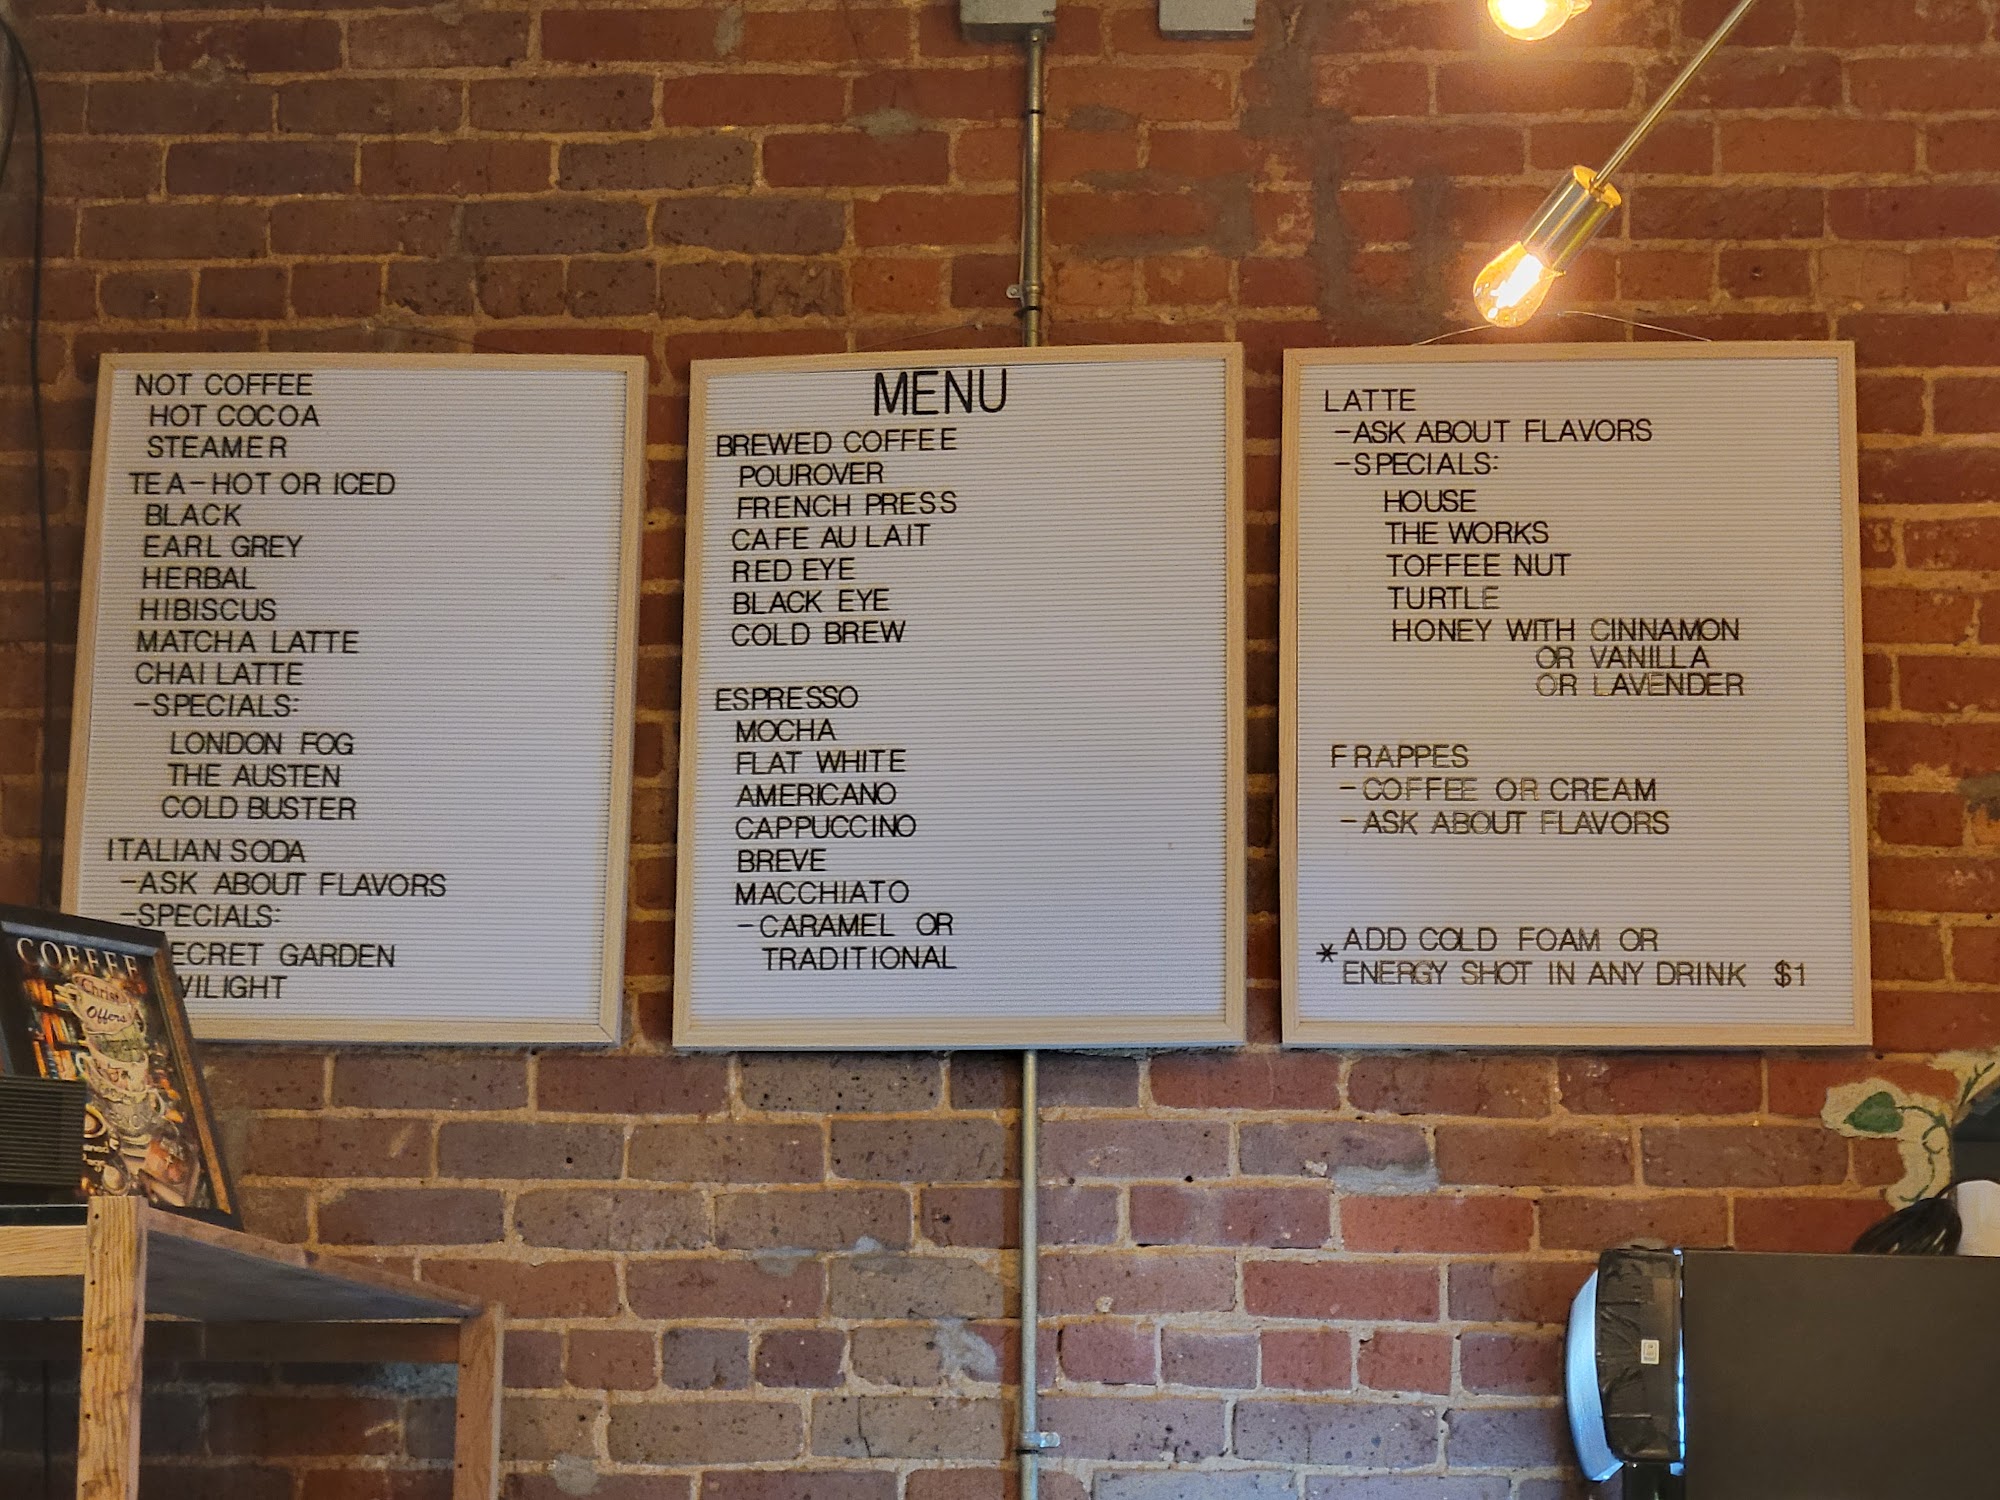 NOT COFFEE
HOT COCOA
STEAMER
TEA-HOT OR ICED
BLACK
EARL GREY
HERBAL
HIBISCUS
MATCHA LATTE
CHAI LATTE
-SPECIALS:
LONDON FOG
THE AUSTEN
COLD BUSTER
ITALIAN SODA
-ASK ABOUT FLAVORS
-SPECIALS:
ECRET GARDEN
WILIGHT
MENU
BREWED COFFEE
POUROVER
FRENCH PRESS
CAFE AU LAIT
RED EYE
BLACK EYE
COLD BREW
ESPRESSO
MOCHA
FLAT WHITE
AMERICANO
CAPPUCCINO
BREVE
MACCHIATO
-CARAMEL OR
TRADITIONAL
LATTE
-ASK ABOUT FLAVORS
-SPECIALS:
HOUSE
THE WORKS
TOFFEE NUT
TURTLE
HONEY WITH CINNAMON
OR VANILLA
OR LAVENDER
FRAPPES
-COFFEE OR CREAM
-ASK ABOUT FLAVORS
* ADD COLD FOAM OR
ENERGY SHOT IN ANY DRINK $1
COFFEE
Christ
Offers